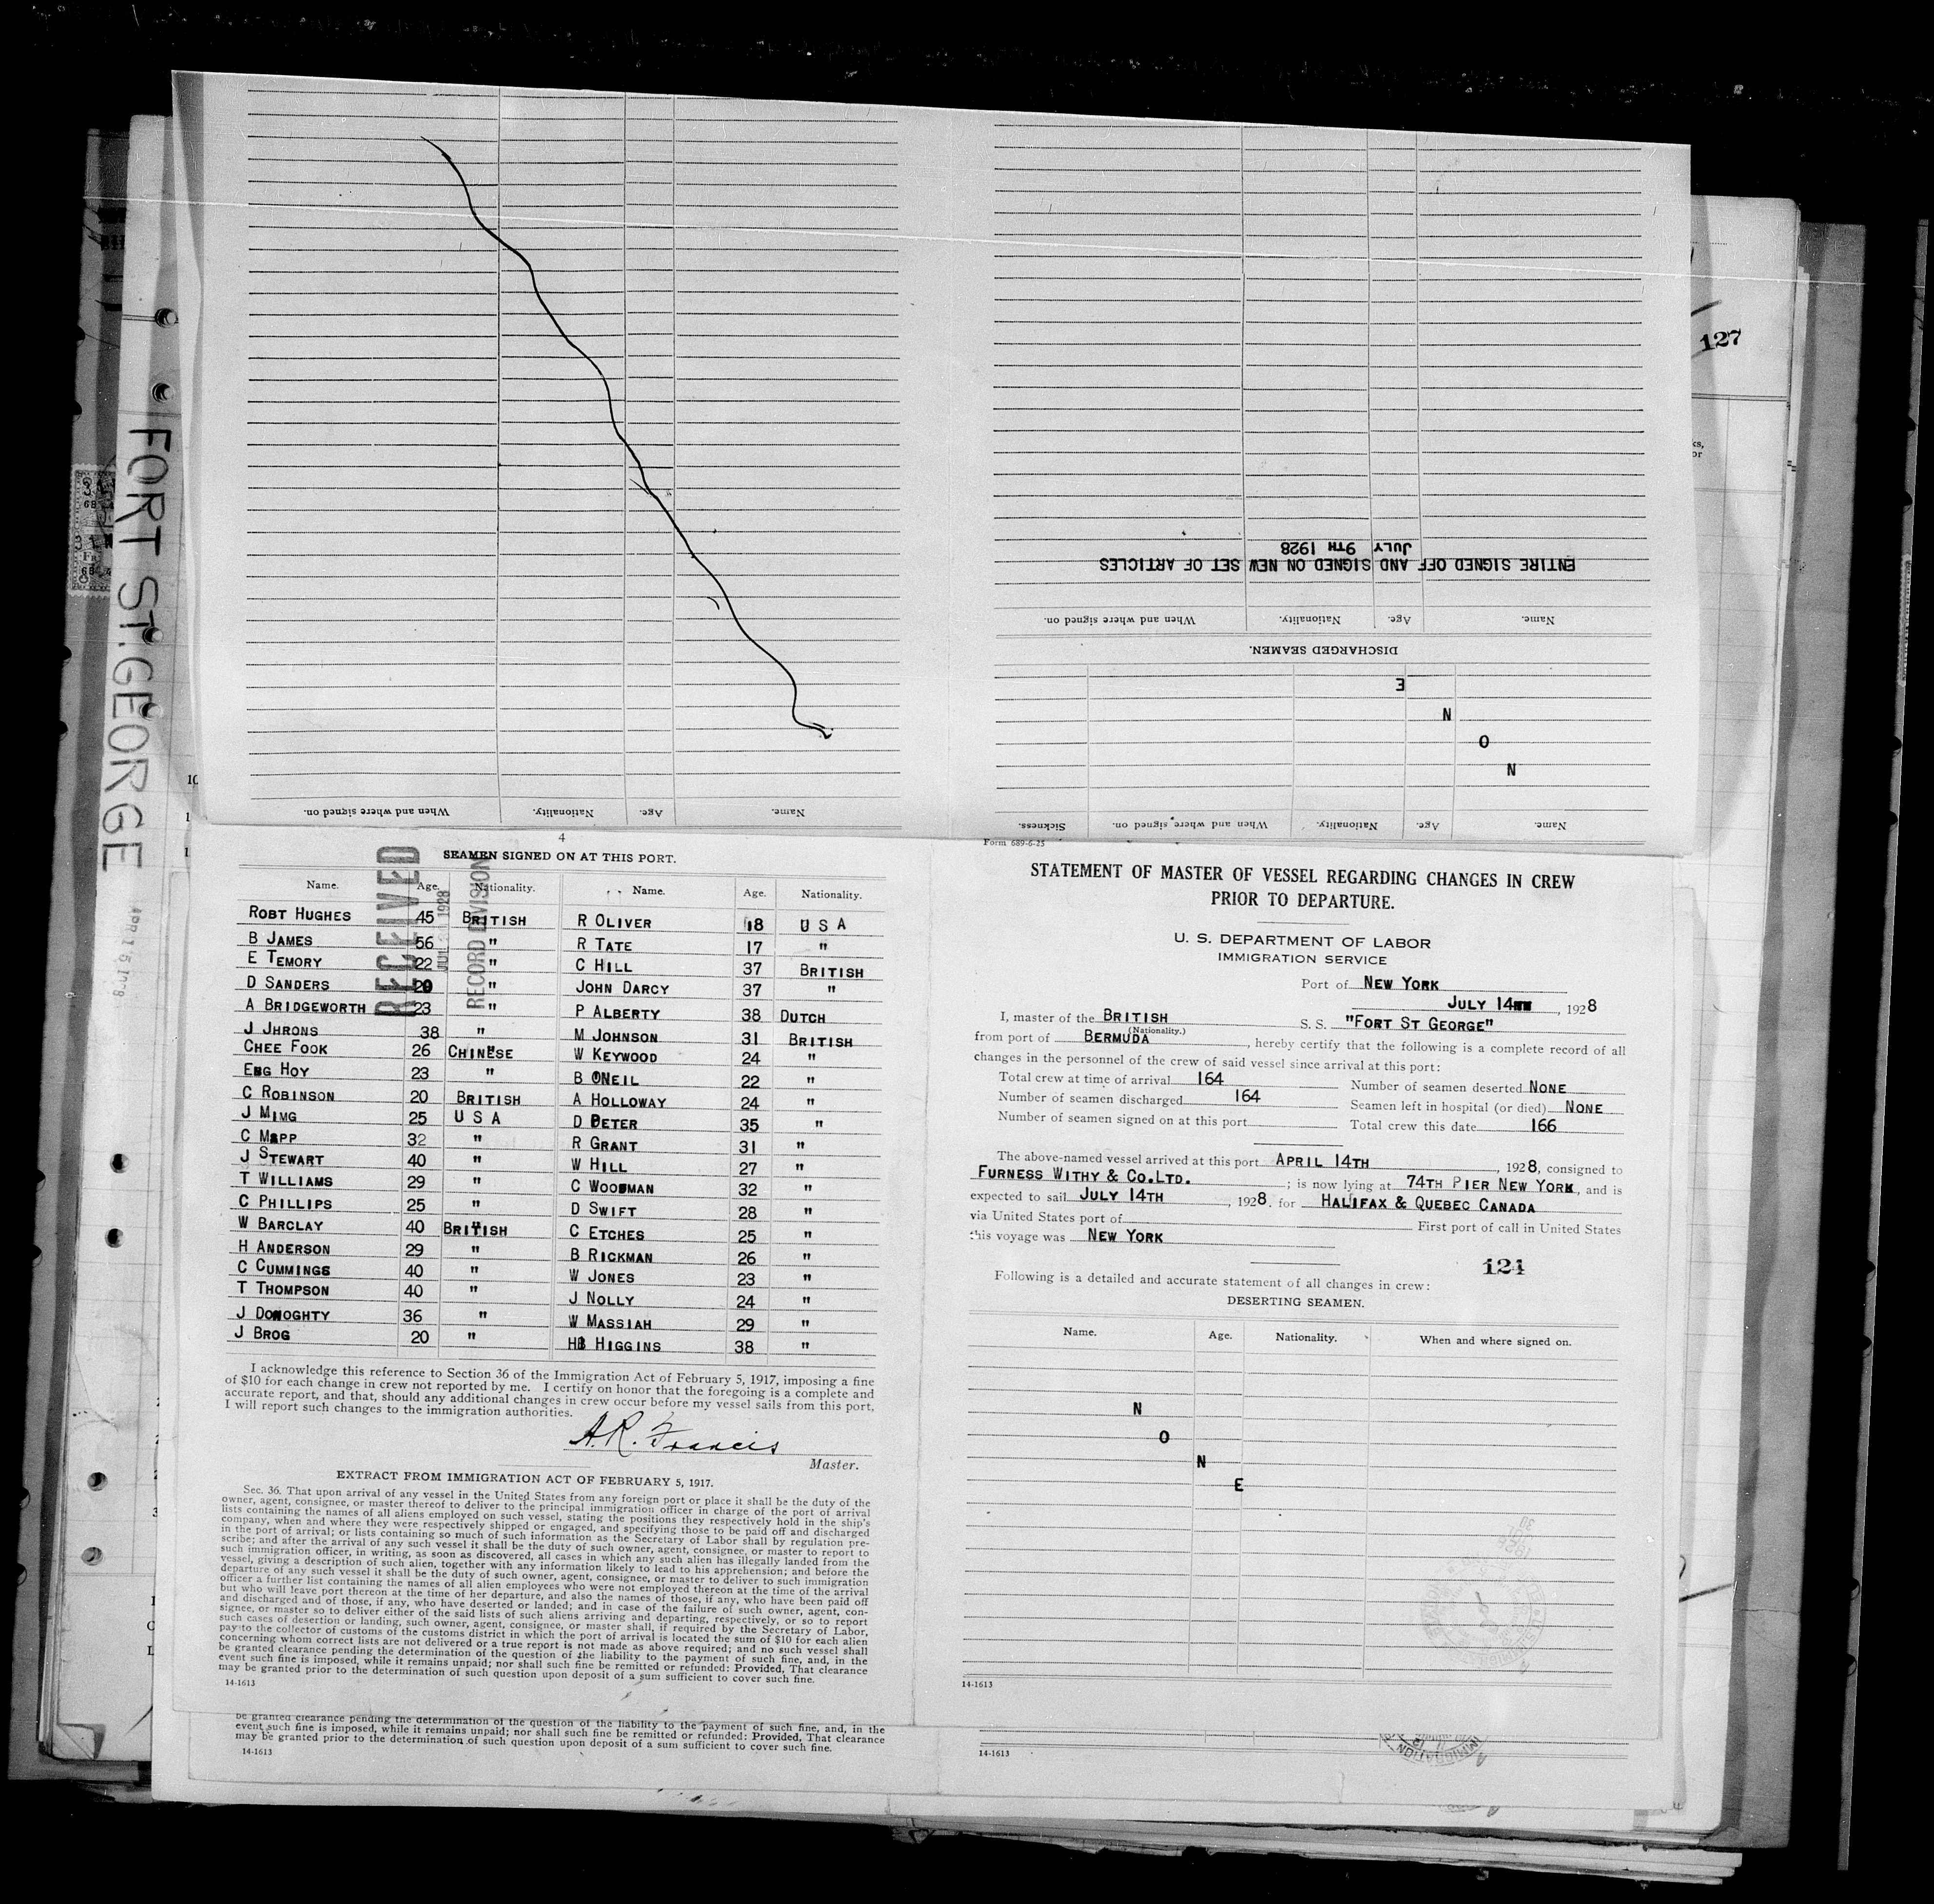 FORT ST. GEORGE
127
Name. Age. Nationality. When and where signed on.
ENTIRE SIGNED OFF AND SIGNED ON NEW SET OF ARTICLES
JULY 9TH 1928
Name. Age. Nationality. When and where signed on.
DISCHARGED SEAMEN.
E
N
O
N
Name. Age. Nationality. When and where signed on. Sickness.
4
SEAMEN SIGNED ON AT THIS PORT.
RECEIVED
RECORD DIVISION
Name. Age. Nationality. Name. Age. Nationality.
ROBT HUGHES 45 BRITISH R OLIVER 18 U S A
B JAMES 56 " R TATE 17 "
E TEMORY 22 " C HILL 37 BRITISH
D SANDERS 20 " JOHN DARCY 37 "
A BRIDGEWORTH 23 " P ALBERTY 38 DUTCH
J JHRONS 38 " M JOHNSON 31 BRITISH
CHEE FOOK 26 CHINESE W KEYWOOD 24 "
ENG HOY 23 " B ONEIL 22 "
C ROBINSON 20 BRITISH A HOLLOWAY 24 "
J MIMG 25 U S A D PETER 35 "
C MAPP 32 " R GRANT 31 "
J STEWART 40 " W HILL 27 "
T WILLIAMS 29 " C WOODMAN 32 "
C PHILLIPS 25 " D SWIFT 28 "
W BARCLAY 40 BRITISH C ETCHES 25 "
H ANDERSON 29 " B RICKMAN 26 "
C CUMMINGS 40 " W JONES 23 "
T THOMPSON 40 " J NOLLY 24 "
J DONOGHTY 36 " W MASSIAH 29 "
J BROG 20 " HB HIGGINS 38 "
I acknowledge this reference to Section 36 of the Immigration Act of February 5, 1917, imposing a fine
of $10 for each change in crew not reported by me. I certify on honor that the foregoing is a complete and
accurate report, and that, should any additional changes in crew occur before my vessel sails from this port,
I will report such changes to the immigration authorities.
A.R. Francis
Master.
EXTRACT FROM IMMIGRATION ACT OF FEBRUARY 5, 1917.
Sec. 36. That upon arrival of any vessel in the United States from any foreign port or place it shall be the duty of the
owner, agent, consignee, or master thereof to deliver to the principal immigration officer in charge of the port of arrival
lists containing the names of all aliens employed on such vessel, stating the positions they respectively hold in the ship's
company, when and where they were respectively shipped or engaged, and specifying those to be paid off and discharged
in the port of arrival; or lists containing so much of such information as the Secretary of Labor shall by regulation pre-
scribe; and after the arrival of any such vessel it shall be the duty of such owner, agent, consignee, or master to report to
such immigration officer, in writing, as soon as discovered, all cases in which any such alien has illegally landed from the
vessel, giving a description of such alien, together with any information likely to lead to his apprehension; and before the
departure of any such vessel it shall be the duty of such owner, agent, consignee, or master to deliver to such immigration
officer a further list containing the names of all alien employees who were not employed thereon at the time of the arrival
but who will leave port thereon at the time of her departure, and also the names of those, if any, who have been paid off
and discharged and of those, if any, who have deserted or landed; and in case of the failure of such owner, agent, con-
signee, or master so to deliver either of the said lists of such aliens arriving and departing, respectively, or so to report
such cases of desertion or landing, such owner, agent, consignee, or master shall, if required by the Secretary of Labor,
pay to the collector of customs of the customs district in which the port of arrival is located the sum of $10 for each alien
concerning whom correct lists are not delivered or a true report is not made as above required; and no such vessel shall
be granted clearance pending the determination of the question of the liability to the payment of such fine, and, in the
event such fine is imposed, while it remains unpaid; nor shall such fine be remitted or refunded: Provided, That clearance
may be granted prior to the determination of such question upon deposit of a sum sufficient to cover such fine.
14-1613
be granted clearance pending the determination of the question of the liability to the payment of such fine, and, in the
event such fine is imposed, while it remains unpaid; nor shall such fine be remitted or refunded: Provided, That clearance
may be granted prior to the determination of such question upon deposit of a sum sufficient to cover such fine.
14-1613
Form 689-6-25
STATEMENT OF MASTER OF VESSEL REGARDING CHANGES IN CREW
PRIOR TO DEPARTURE.
U. S. DEPARTMENT OF LABOR
IMMIGRATION SERVICE
Port of NEW YORK
JULY 14TH, 1928
I, master of the BRITISH S. S. "FORT ST GEORGE"
(Nationality.)
from port of BERMUDA, hereby certify that the following is a complete record of all
changes in the personnel of the crew of said vessel since arrival at this port:
Total crew at time of arrival 164 Number of seamen deserted NONE
Number of seamen discharged 164 Seamen left in hospital (or died) NONE
Number of seamen signed on at this port Total crew this date 166
The above-named vessel arrived at this port APRIL 14TH, 1928, consigned to
FURNESS WITHY & CO.LTD. ; is now lying at 74TH PIER NEW YORK, and is
expected to sail JULY 14TH, 1928. for HALIFAX & QUEBEC CANADA
via United States port of First port of call in United States
this voyage was NEW YORK
124
Following is a detailed and accurate statement of all changes in crew:
DESERTING SEAMEN.
Name. Age. Nationality. When and where signed on.
N
O
N
E
14-1613
14-1613